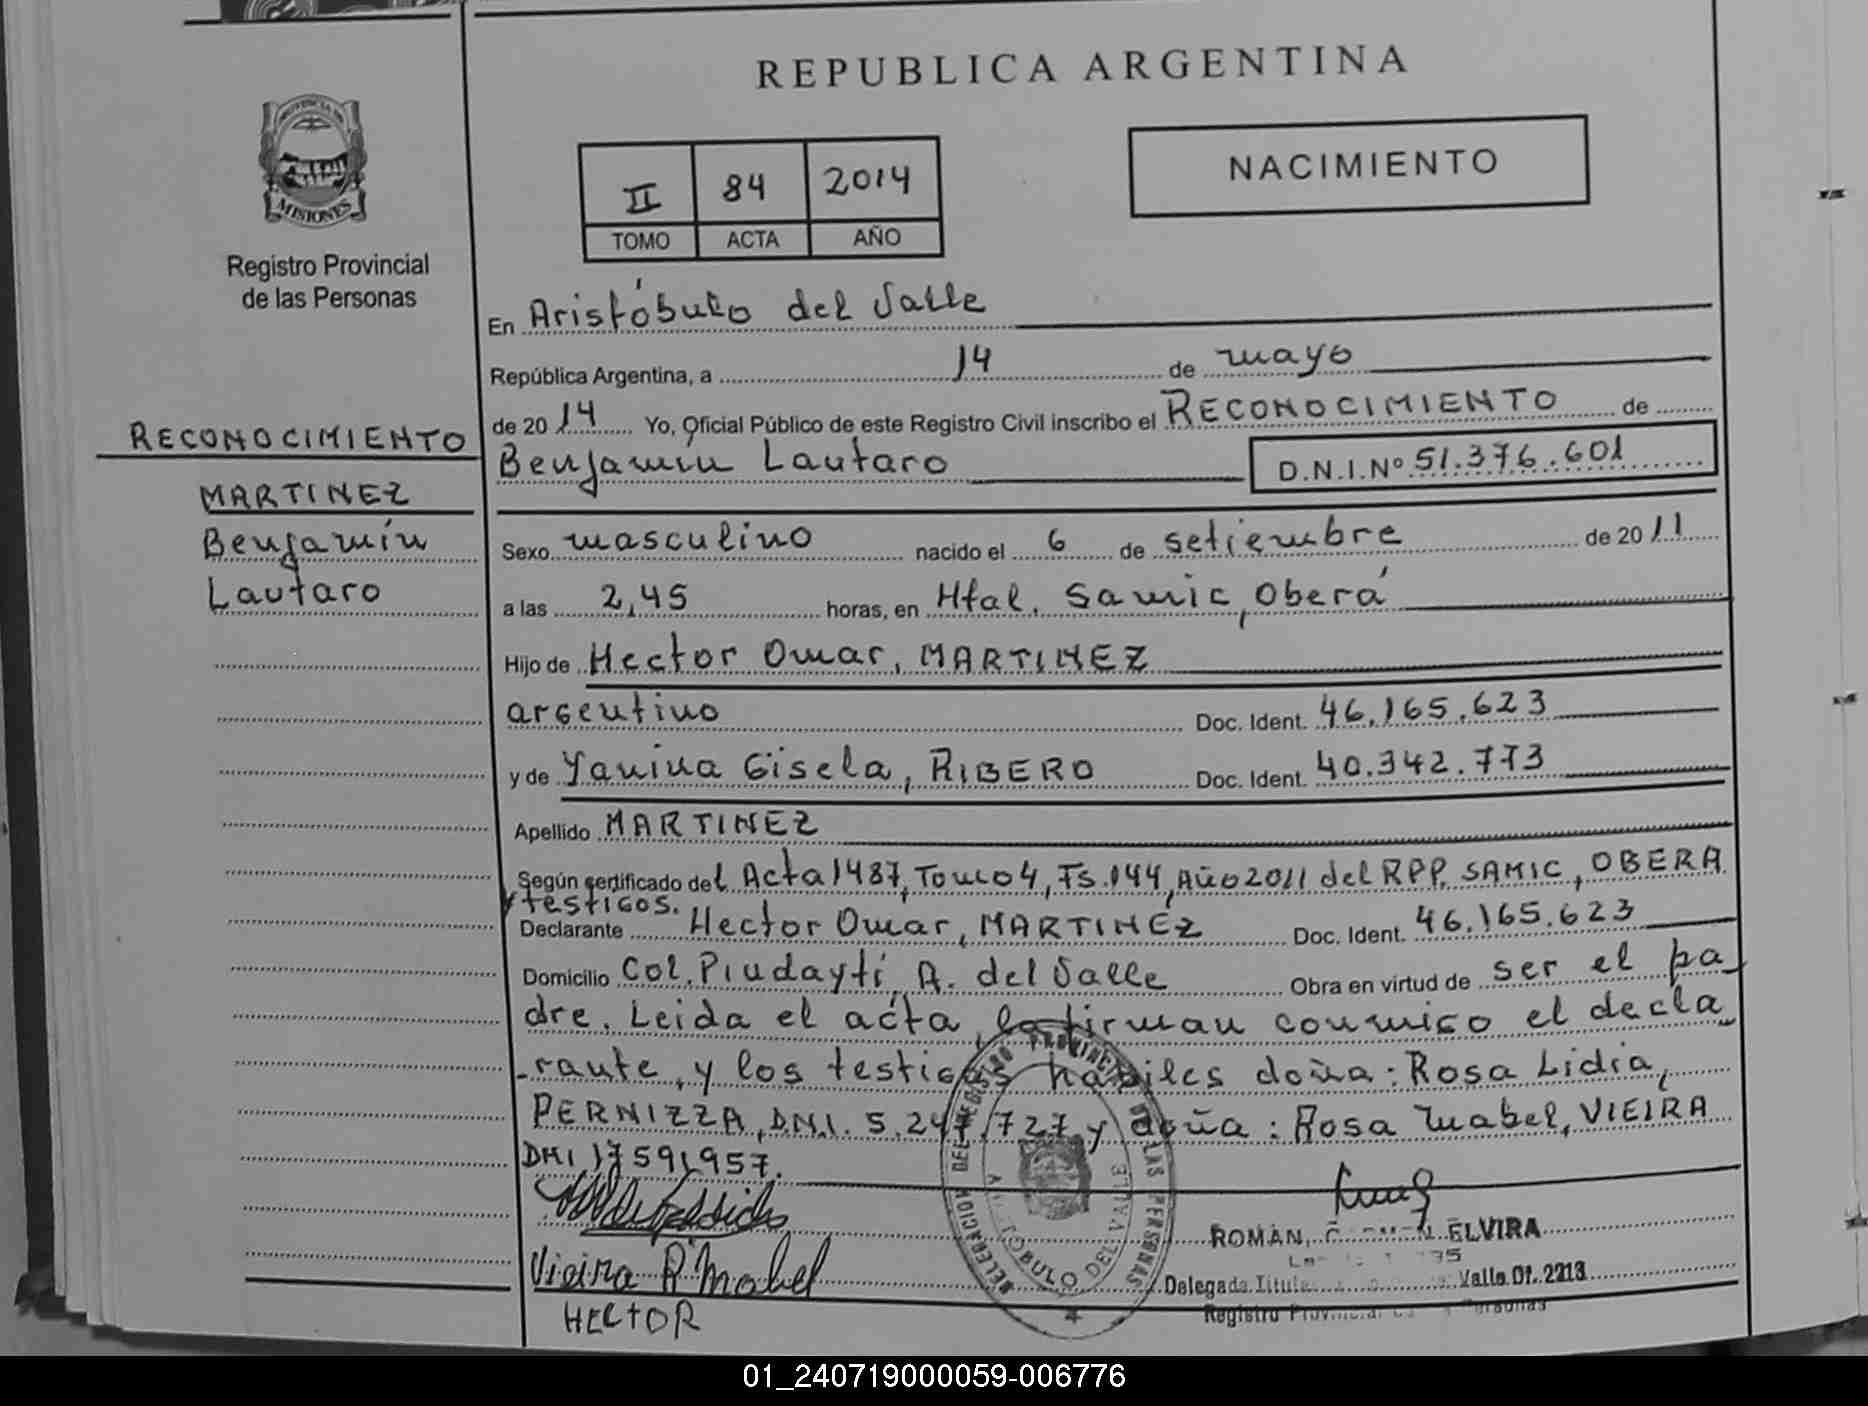 REPUBLICA ARGENTINA
NACIMIENTO
II 84 2014
TOMO ACTA AÑO
PROVINCIA DE
MISIONES
Registro Provincial
de las Personas
RECONOCIMIENTO
MARTINEZ
Benjamín
Lautaro
En Aristóbulo del Valle
República Argentina, a 14 de mayo
de 2014 Yo, Oficial Público de este Registro Civil inscribo el RECONOCIMIENTO de
Benjamin Lautaro D.N.I.Nº 51.376.601
Sexo masculino nacido el 6 de setiembre de 2011
a las 2,45 horas, en Htal. Samic, Oberá
Hijo de Hector Omar, MARTINEZ
argentino Doc. Ident. 46.165.623
y de Yanina Gisela, RIBERO Doc. Ident. 40.342.773
Apellido MARTINEZ
Según certificado del Acta 1487, Tomo 4, Fs.144, Año 2011 del RPP. SAMIC, OBERA
y testigos.
Declarante Hector Omar, MARTINEZ Doc. Ident. 46.165.623
Domicilio Col. Pindaytí, A. del Valle Obra en virtud de ser el pa
dre. Leida el acta, la firman conmigo el decla
rante, y los testigos habiles doña: Rosa Lidia,
PERNIZZA, DNI. 5.247.727 y doña: Rosa Mabel, VIEIRA
DNI, 17591957.
DELEGACION DEL REGISTRO PROVINCIAL DE LAS PERSONAS
ARISTOBULO DEL VALLE
ROMAN, ELVIRA
Delegada Titular Valle Of. 2213
Registro Provincial Personas
Vieira R Mabel
HECTOR
01_240719000059-006776